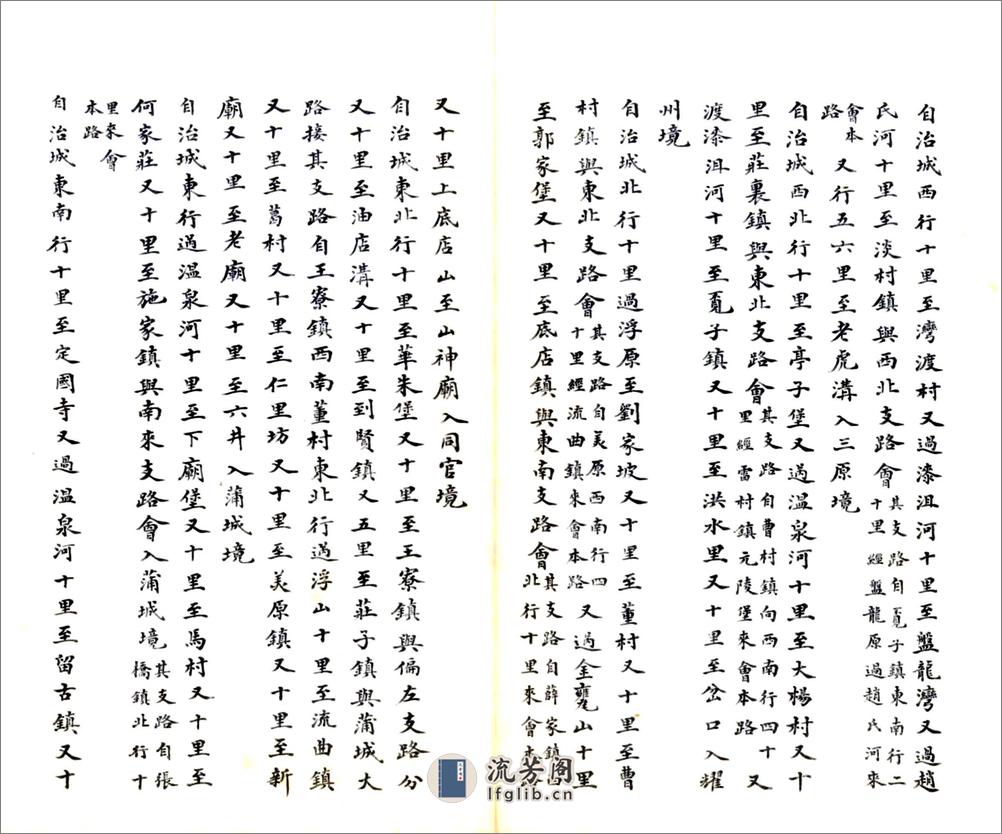 自治城西行十里至灣渡村又過漆沮河十里至盤龍灣又過趙
氏河十里至淡村鎮與西北支路會其支路自覔子鎮東南行二
十里經盤龍原過趙氏河來
會本
路又行五六里至老虎溝入三原境
自治城西北行十里至亭子堡又過温泉河十里至大楊村又十
里至莊裏鎮與東北支路會其支路自曹村鎮向西南行四十
里經雷村鎮元陵堡來會本路又
渡漆沮河十里至覔子鎮又十里至洪水里又十里至岔口入耀
州境
自治城北行十里過浮原至劉家坡又十里至董村又十里至曹
村鎮與東北支路會其支路自美原西南行四
十里經流曲鎮來會本路又過金甕山十里
至郭家堡又十里至底店鎮與東南支路會其支路自薛家鎮
北行十里來會本
又十里上底店山至山神廟入同官境
自治城東北行十里至華朱堡又十里至王寮鎮與偏左支路分
又十里至油店溝又十里至到賢鎮又五里至莊子鎮與蒲城大
路接其支路自王寮鎮西南董村東北行過浮山十里至流曲鎮
又十里至葛村又十里至仁里坊又十里至美原鎮又十里至新
廟又十里至老廟又十里至六井入蒲城境
自治城東行過温泉河十里至下廟堡又十里至馬村又十里至
何家莊又十里至施家鎮與南來支路會入蒲城境其支路自張
橋鎮北行十
里來會
本路
自治城東南行十里至定國寺又過温泉河十里至留古鎮又十
流芳阁
lfglib.cn